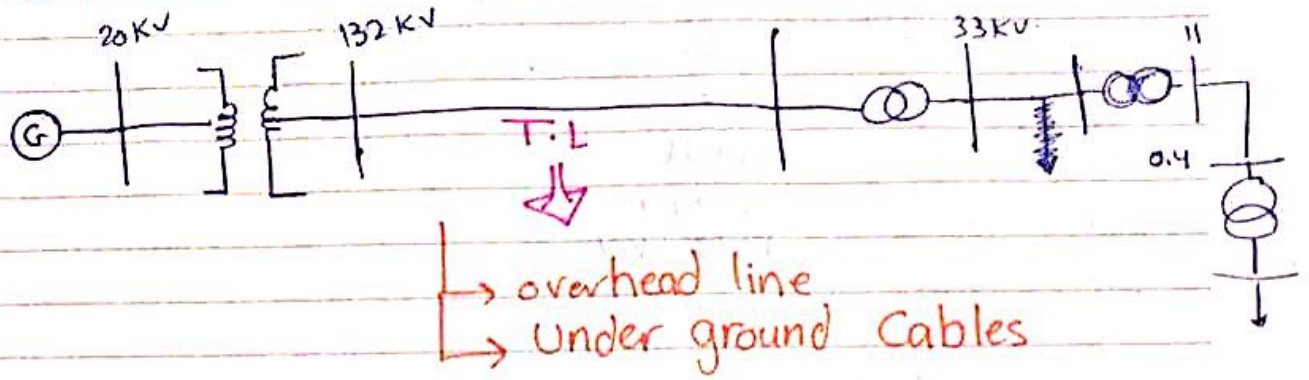 20 KV
132 KV
33 KV.
11
G
T.L
0.4
→ overhead line
→ Under ground Cables